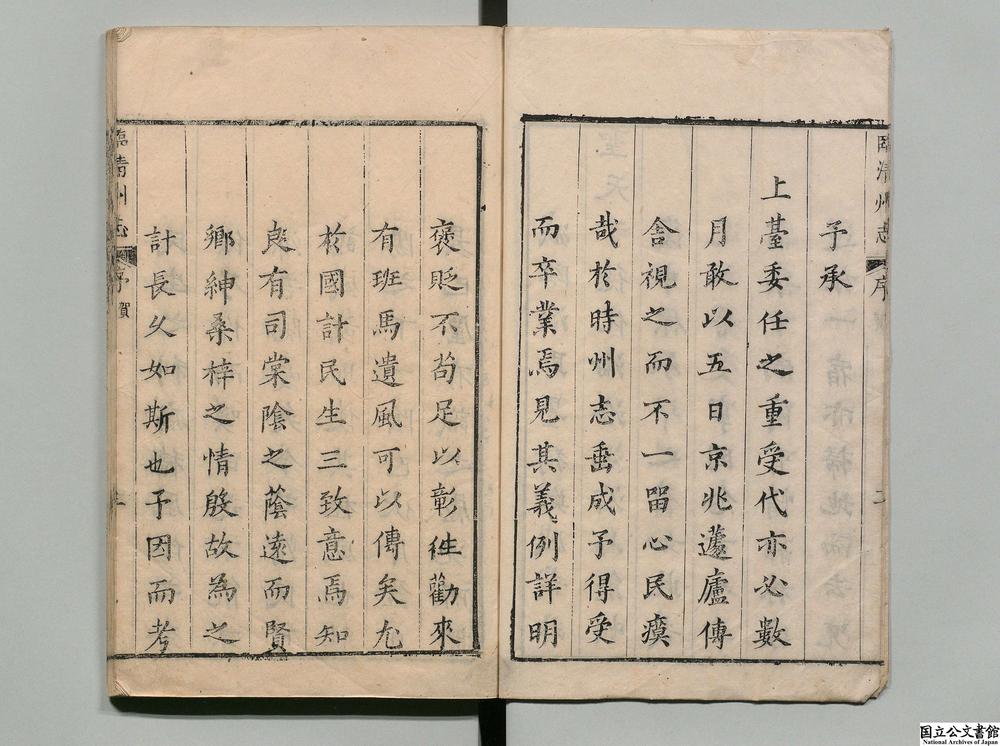 臨清州志 序 二
予承
上臺委任之重受代亦必數
月敢以五日京兆蘧廬傳
舍視之而不一留心民瘼
哉於時州志垂成予得受
而卒業焉見其義例詳明
褒貶不苟足以彰往勸來
有班馬遺風可以傳矣尤
於國計民生三致意焉知
良有司棠陰之蔭遠而賢
鄉紳桑梓之情殷故為之
計長久如斯也予因而考
臨清州志 序 賀
国立公文書館
National Archives of Japan